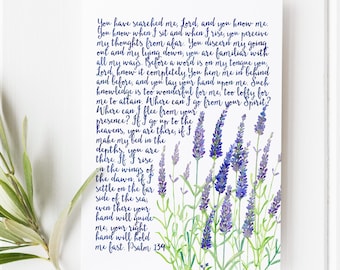 You have searched me, Lord, and you know me.
You know when I sit and when I rise, you perceive
my thoughts from afar. You discern my going
out and my lying down, you are familiar with
all my ways. Before a word is on my tongue you,
Lord, know it completely. You hem me in behind
and before, and you lay your hand upon me. Such
knowledge is too wonderful for me, too lofty for
me to attain. Where can I go from your Spirit?
Where can I flee from your
presence? If I go up to the
heavens, you are there, if I
make my bed in the
depths, you are
there. If I rise
on the wings of
the dawn, if I
settle on the far
side of the sea,
even there your
hand will guide
me, your right
hand will hold
me fast. Psalm 139